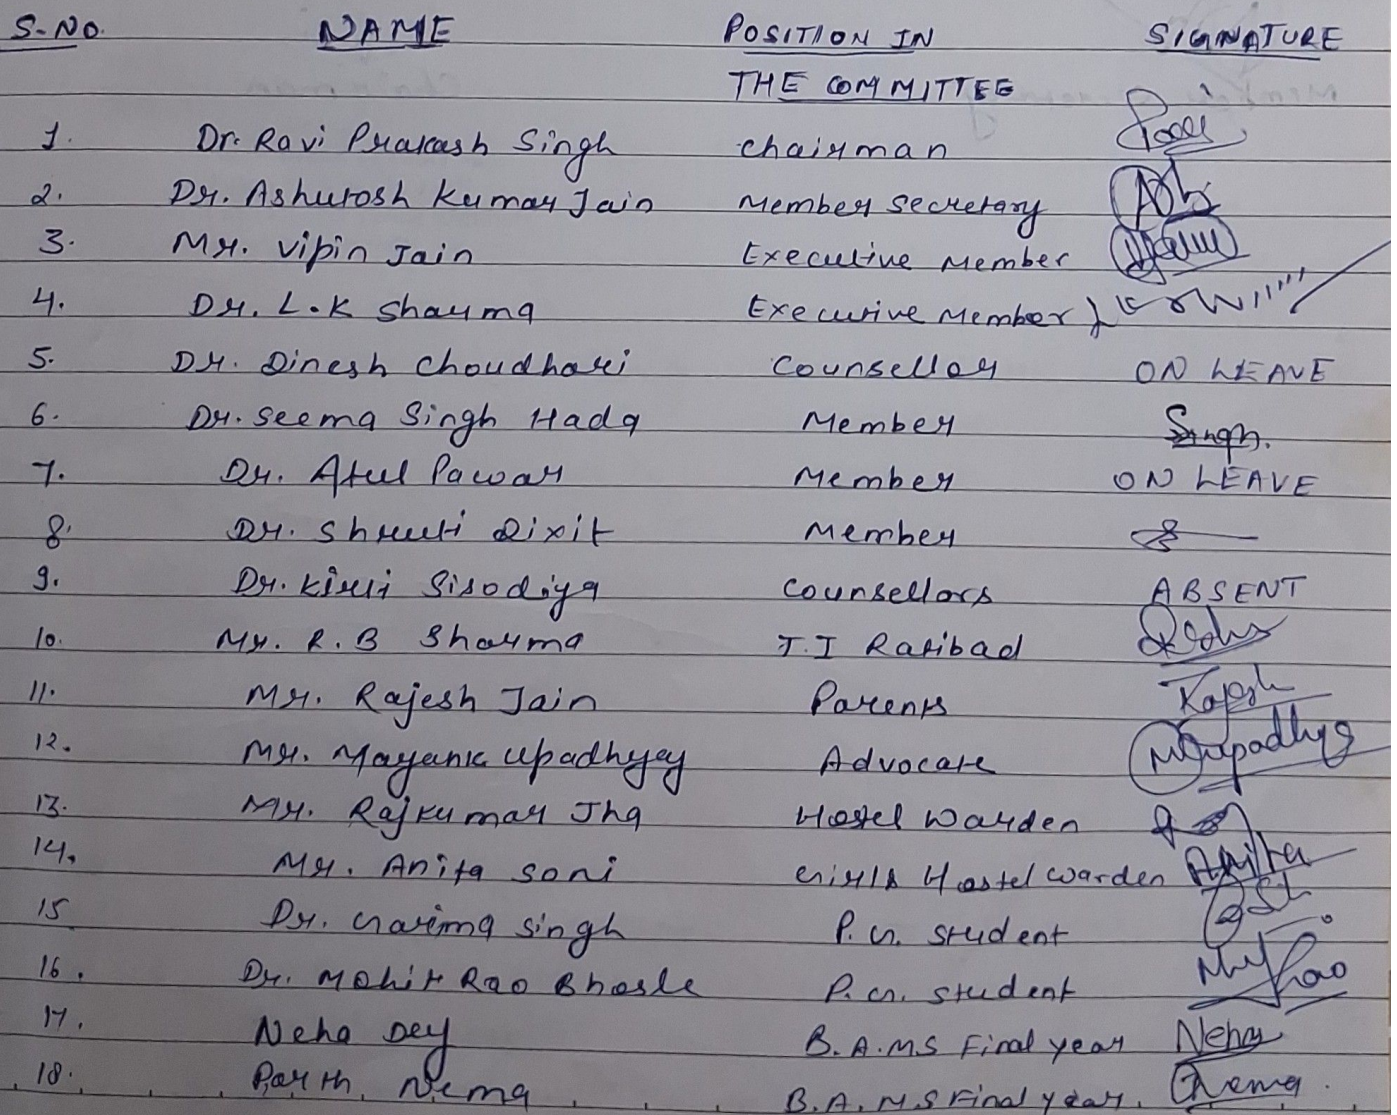 S.NO. NAME POSITION IN SIGNATURE
THE COMMITTEE
1. Dr. Ravi Prakash Singh Chairman
2. Dr. Ashutosh Kumar Jain Member Secretary
3. Mr. Vipin Jain Executive Member
4. Dr. L.K Sharma Executive Member
5. Dr. Dinesh Choudhari Counsellor ON LEAVE
6. Dr. Seema Singh Hada Member Singh.
7. Dr. Atul Pawar Member ON LEAVE
8. Dr. Shruti Dixit Member
9. Dr. Kirti Sisodiya Counsellors ABSENT
10. Mr. R.B Sharma T.I Ratibad
11. Mr. Rajesh Jain Parents Rajesh
12. Mr. Mayank Upadhyay Advocate MUpadhyay
13. Mr. Rajkumar Jha Hostel Warden
14. Mr. Anita Soni Girls Hostel Warden Anita
15 Dr. Garima Singh P.G. Student
16. Dr. Mohit Rao Bhosle P.G. Student Rao
17. Neha Dey B.A.M.S Final year Neha
18. Parth Nema B.A.M.S Final year. Nema.